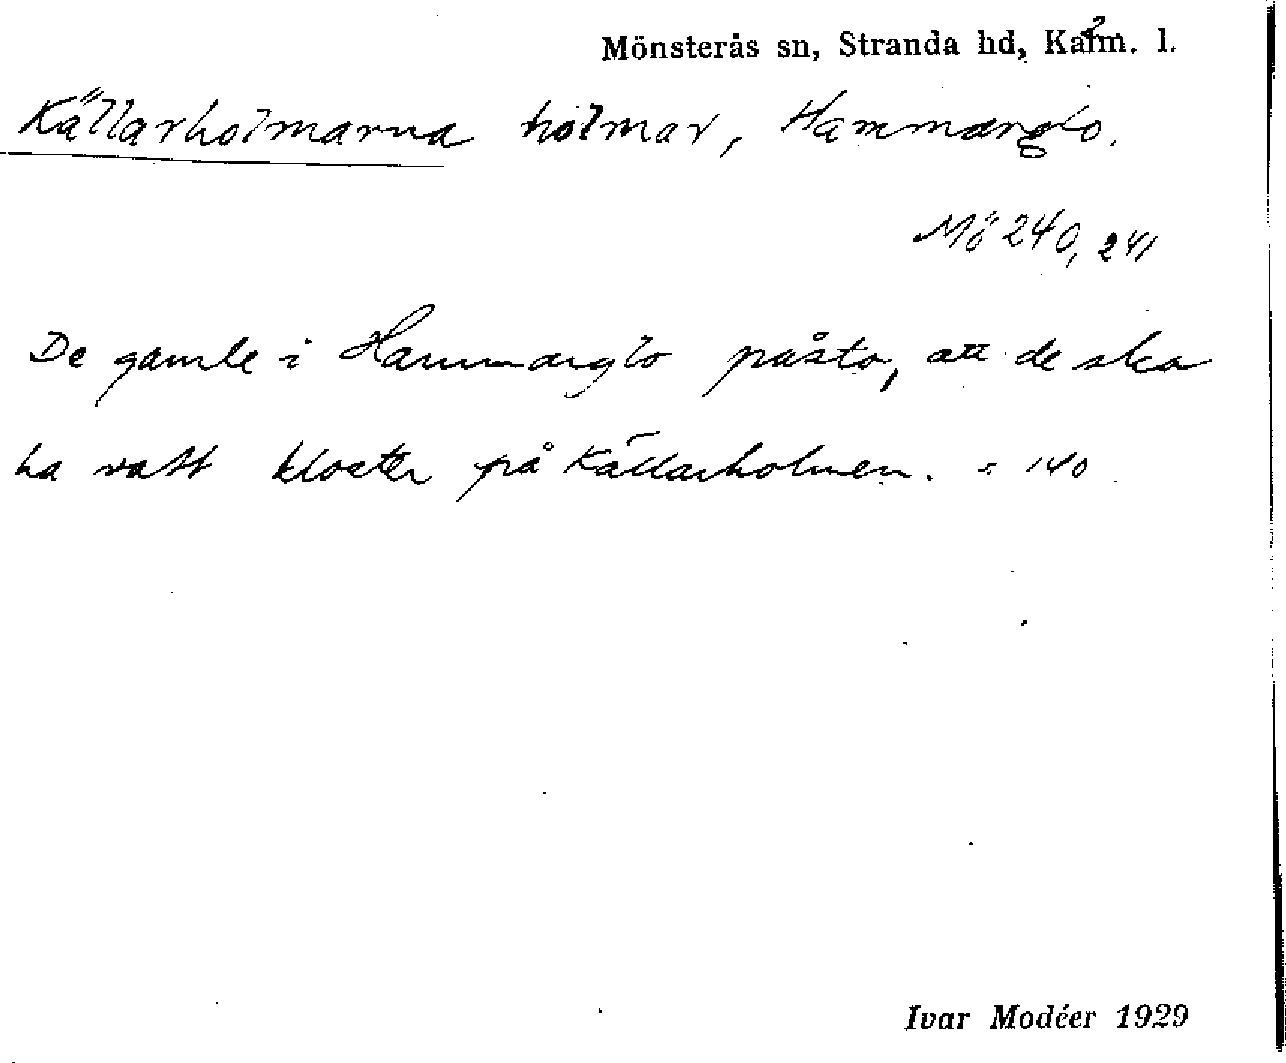 Mönsterås sn, Stranda hd, Kalm. l.
Källarholmarna holmar, Hammarglo.
Mö 240, 241
De gamle i Hammarglo påsto, att de ska
ha vatt kloster på Källarholmen. s 140
Ivar Modéer 1929